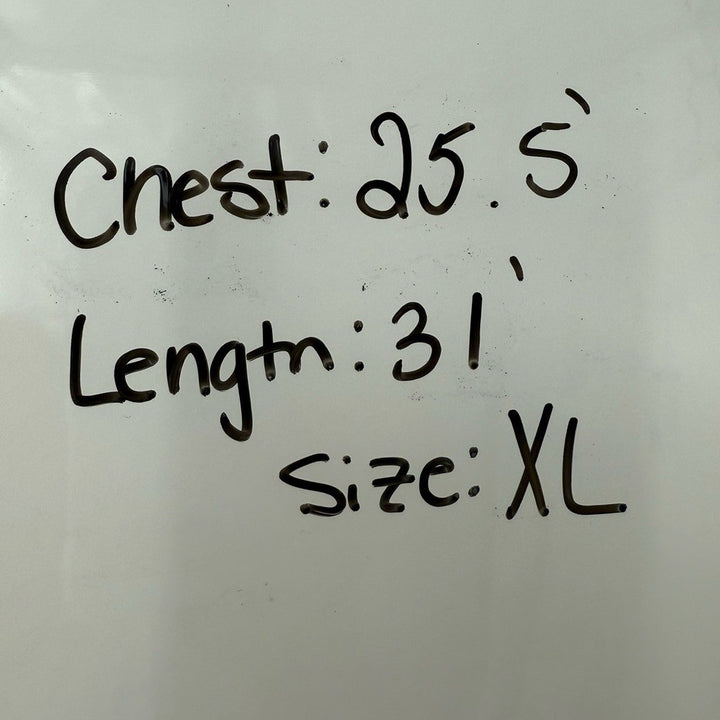 Chest: 25.5'
Length: 31'
Size: XL